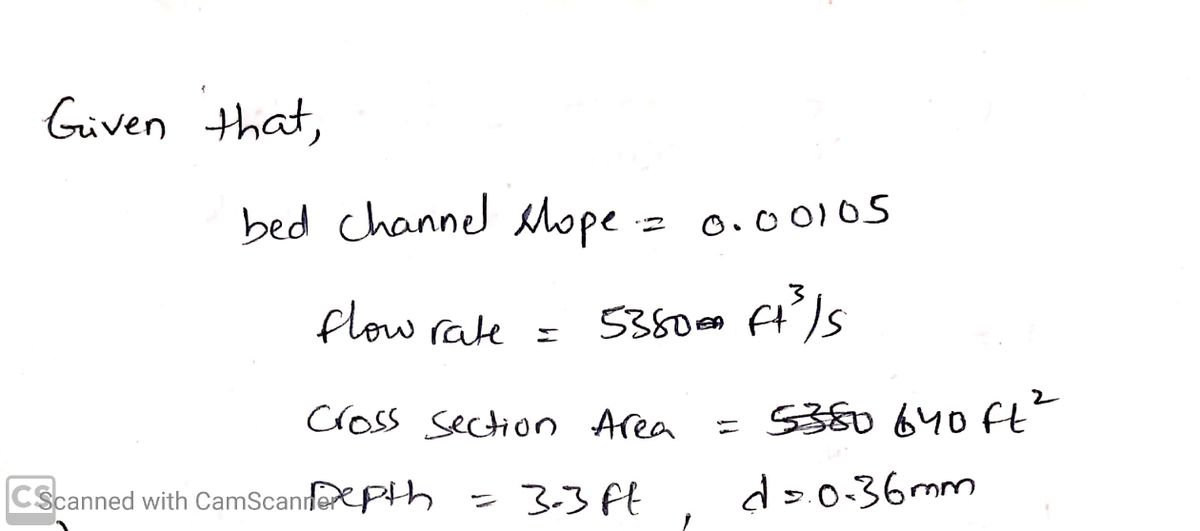 Given that,
bed channel slope = 0.00105
flow rate = 5380 ft³/s
Cross section Area = 5380 640 ft²
Depth = 3.3 ft, d = 0.36mm
CS Scanned with CamScanner